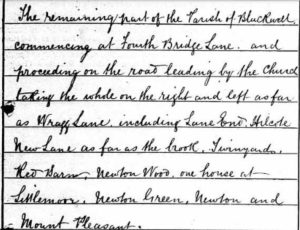 The remaining part of the Parish of Blackwell
commencing at Fourth Bridge Lane. and
proceeding on the road leading by the Church
taking the whole on the right and left as far
as Wragg Lane, including Lane End, Hilcote
New Lane as far as the brook, Twinyards,
Red Barn, Newton Wood, one house at
Littlemoor, Newton Green, Newton and
Mount Pleasant.